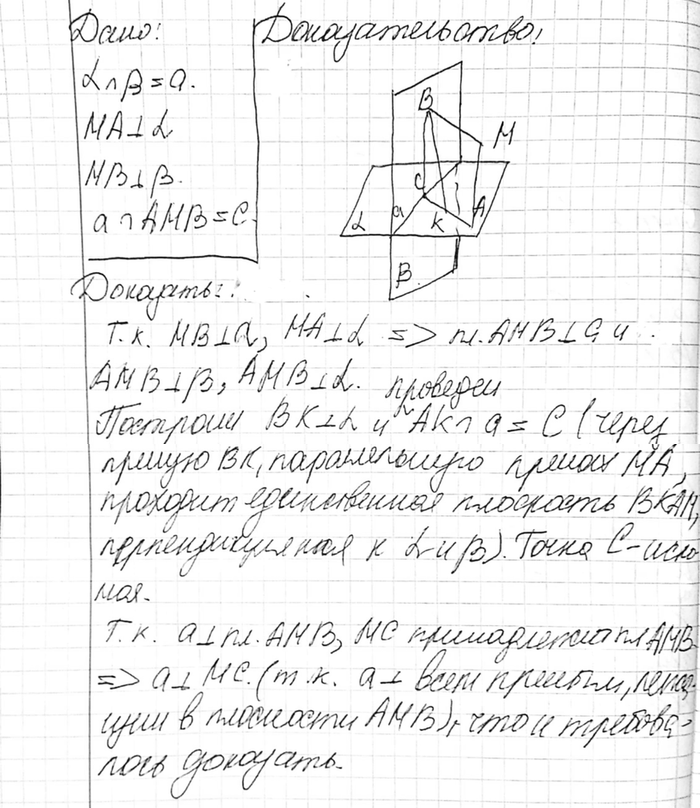 Дано: Доказательство!
α∩β=a.
MA⊥α
MB⊥β.
a∩AMB=C.
B
M
C
α
a
K
A
B
Доказать:
Т.к. MB⊥a, MA⊥α => пл.AMB⊥a и
AMB⊥β, AMB⊥α.
проведем
Построим BK⊥α и AK∩a=C (через
прямую BK, параллельную прямой MA,
проходит единственная плоскость BKAM,
перпендикулярная к α и β). Точка C-иско-
мая.
Т.к. a⊥пл.AMB, MC принадлежит пл AMB
=> a⊥MC. (т.к. a⊥ всем прямым, лежа-
щим в плоскости AMB), что и требова-
лось доказать.